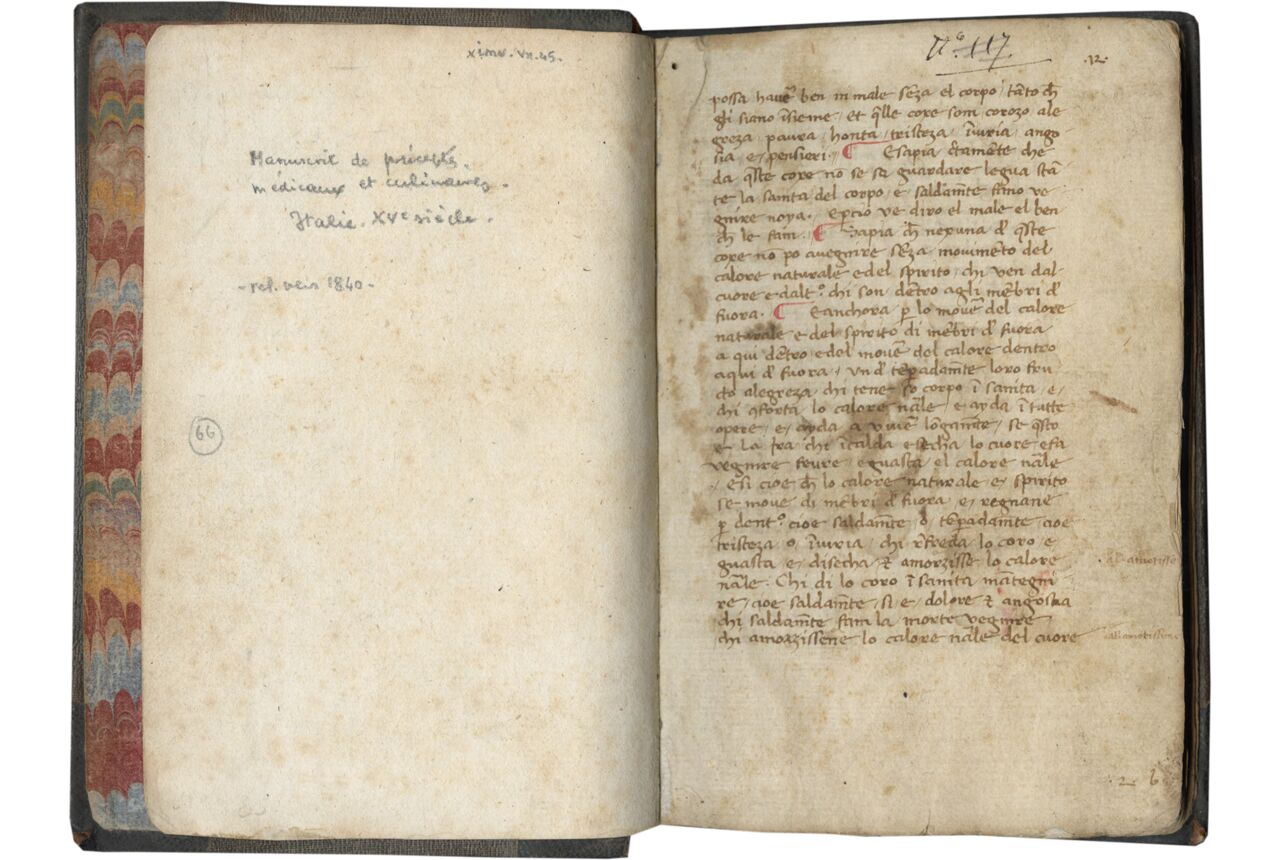 ximv. vn. 45.
Manuscrit de préceptes
médicaux et culinaires.
Italie. XVe siècle.
- rel. vers 1840 -
66
N.º 117
.12.
possa havē ben in male sēza el corpo, tāto ch̄
gli siano īsieme, et q̄lle coxe som corozo ale
greza paura, honta, tristeza, īiuria, ango
sia, e, pensieri. ¶ E sapia c̄tamēte che
da q̄ste coxe no se sa guardare legua stā
te la sanita del corpo, e saldam̄te fāno ve
gnire noya. E pcio ve diro el male el ben
ch̄ le fam. ¶ Sapia ch̄ nexuna d' q̄ste
coxe nō po avegnire sēza movimēto del
calore naturale e del spirito, chi ven dal
cuore e dalt.º chi son dētro agli mēbri d'
fuora. ¶ E anchora p̄ lo movē del calore
naturale e del spirito di mēbri d' fuora
a qui dētro e del movē del calore dentro
a qui d' fuora, un d' tēpadam̄te loro fru
to alegreza, chi tene so corpo ī sanita, e,
chi 9forta lo calore nāle, e ayda ī tutte
opere, e, ayda a vivē lōgam̄te, se q̄sto
e la Ira chi īcalda e secha lo cuore e fa
vegnire fevre, e guasta, el calore nāle
, E si cioe ch̄ lo calore naturale e, spirito
se move di mēbri d' fuora, e, regnane
p̄ dent.º cioe saldam̄te, o, tēpadam̄te cioe
tristeza, o, īiuria, chi r̄freda lo coro e
guasta e, disecha, & amorzisse lo calore
nāle. Chi di lo coro ī sanita mātegni
re, cioe saldam̄te, si e, dolore & angoscia
chi saldam̄te fam la morte vegnire
chi amorzissene lo calore nāle del cuore
2 b